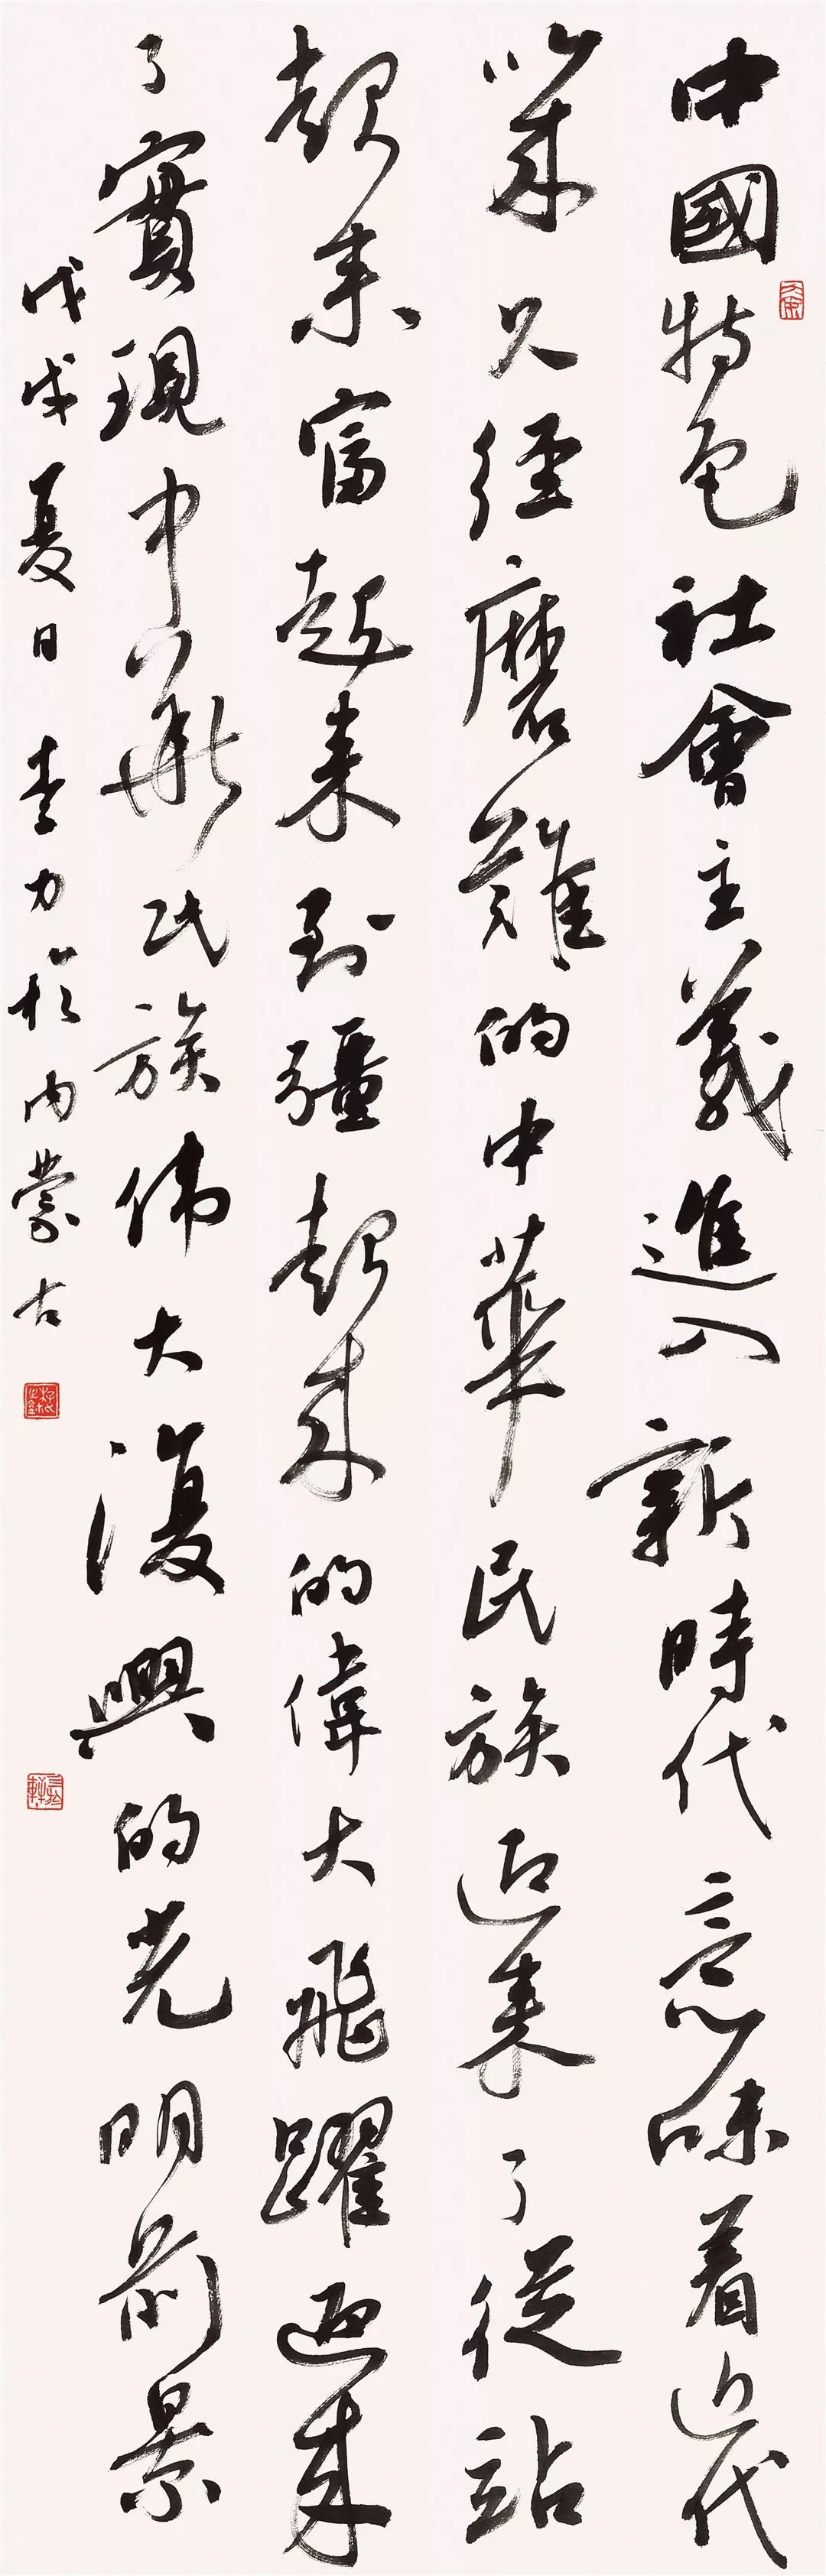 中國特色社會主義進入新時代意味着近代
以來久經磨難的中華民族迎來了從站
起來富起來到疆起來的偉大飛躍迎來
了實現中華民族偉大復興的光明前景
戊戌夏日 李力於内蒙古